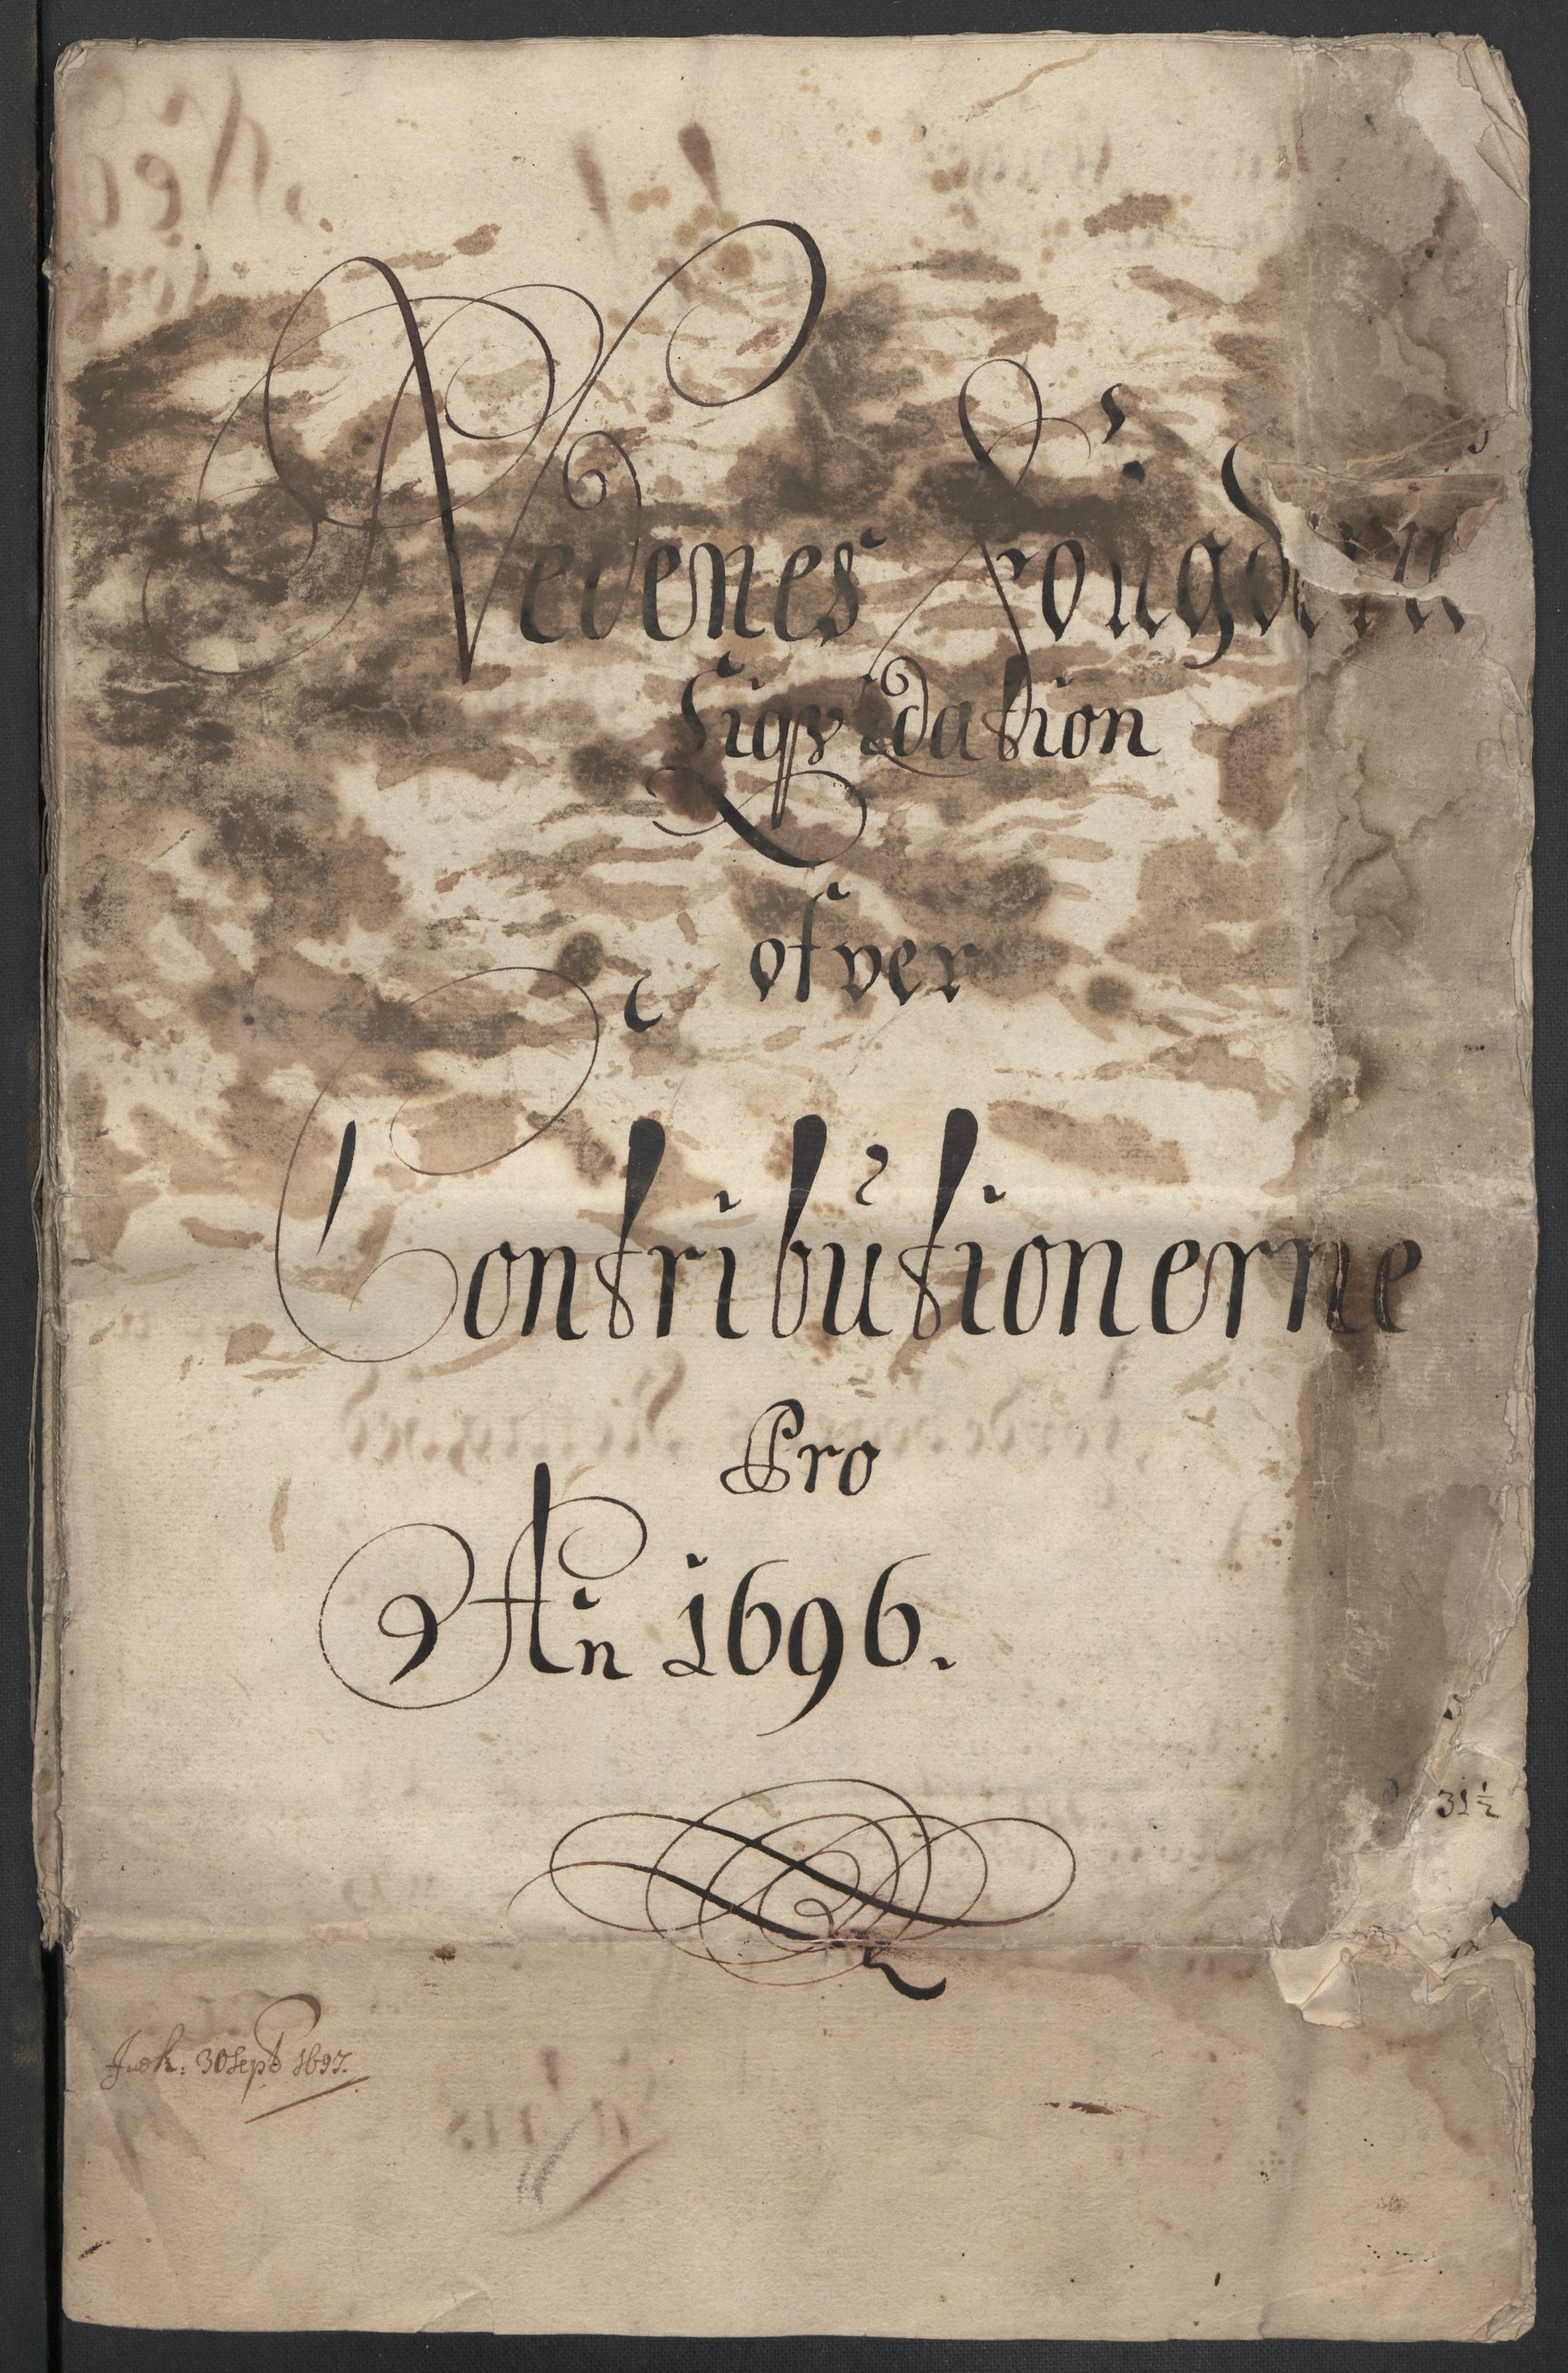 Nedenes Fougderi
Liqvidation
ofver
Contributionerne
Pro
An 1696.
31½
30 Sept 1697.